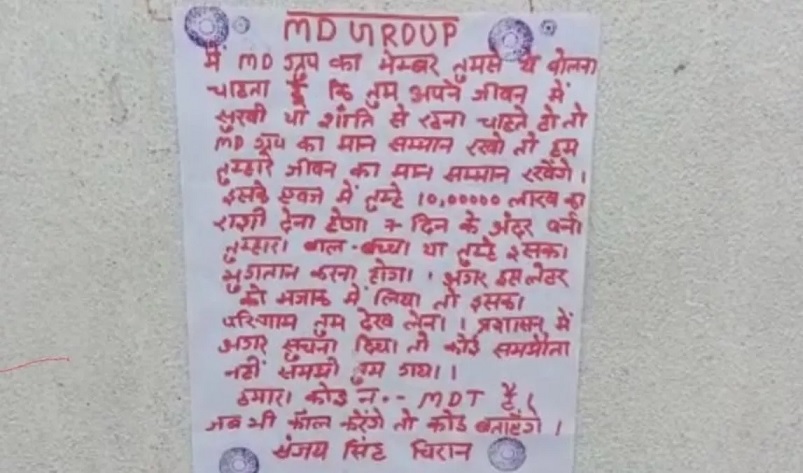 MD GROUP
में MD ग्रुप का मेम्बर तुमसे ये बोलना
चाहता हूँ कि तुम अपने जीवन में
सुखी या शांति से रहना चाहते हो तो
MD ग्रुप का मान सम्मान रखो तो हम
तुम्हारे जीवन का मान सम्मान रखेंगे ।
इसके एवज में तुम्हे 10,00000 लाख का
राशी देना होगा 7 दिन के अंदर वर्ना
तुम्हारा बाल-बच्चा या तुम्हे इसका
भुगतान करना होगा । अगर इस लेटर
को मजाक में लिया तो इसका
परिणाम तुम देख लेना । प्रशासन में
अगर सूचना दिया तो कोई समझौता
नहीं समझो तुम गया ।
हमारा कोड न.-- MDT है ।
जब भी कॉल करेंगे तो कोड बताएंगे ।
संजय सिंह चिरान